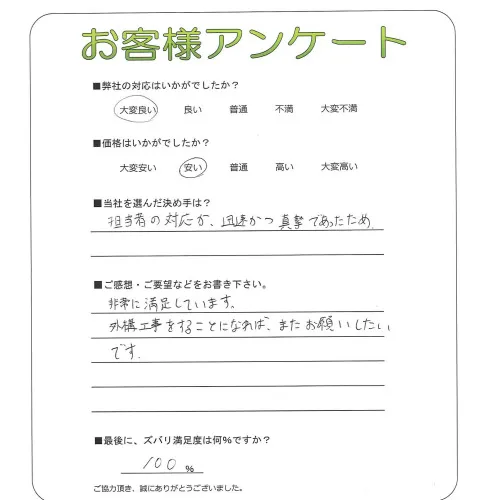 お客様アンケート
■弊社の対応はいかがでしたか？
大変良い 良い 普通 不満 大変不満
■価格はいかがでしたか？
大変安い 安い 普通 高い 大変高い
■当社を選んだ決め手は？
担当者の対応が、迅速かつ真摯であったため
■ご感想・ご要望などをお書き下さい。
非常に満足しています。
外構工事をすることになれば、またお願いしたい
です.
■最後に、ズバリ満足度は何%ですか？
100 %
ご協力頂き、誠にありがとうございました。